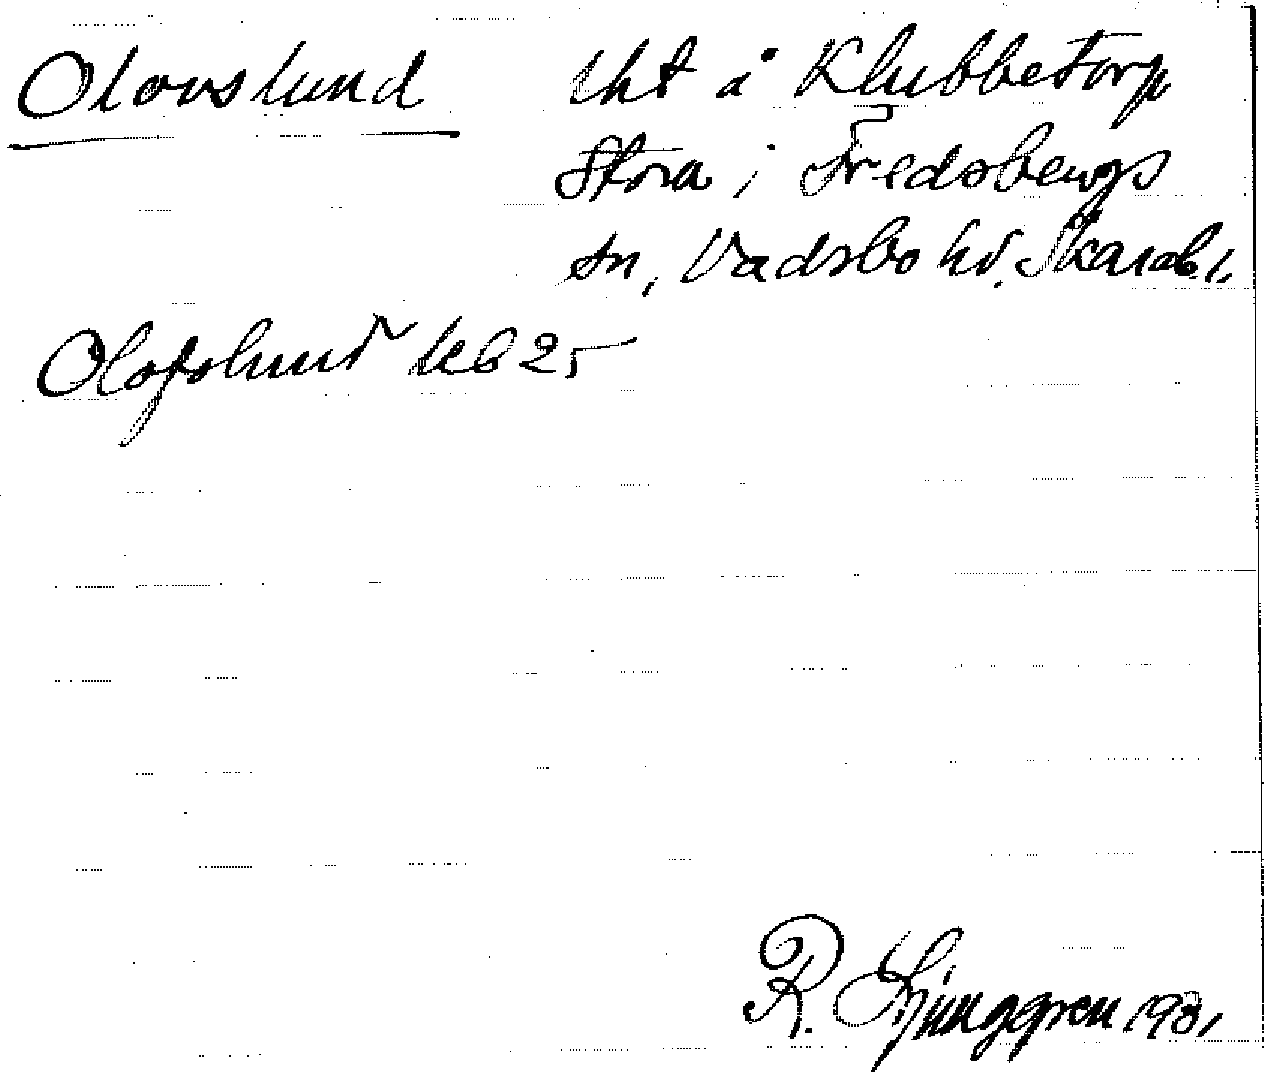 Olovslund lht å Klubbetorp
Stora i Fredsbergs
sn, Vadsbo hd. Skarab.l.
Olofslund kb 25
R. Ljunggren 1931